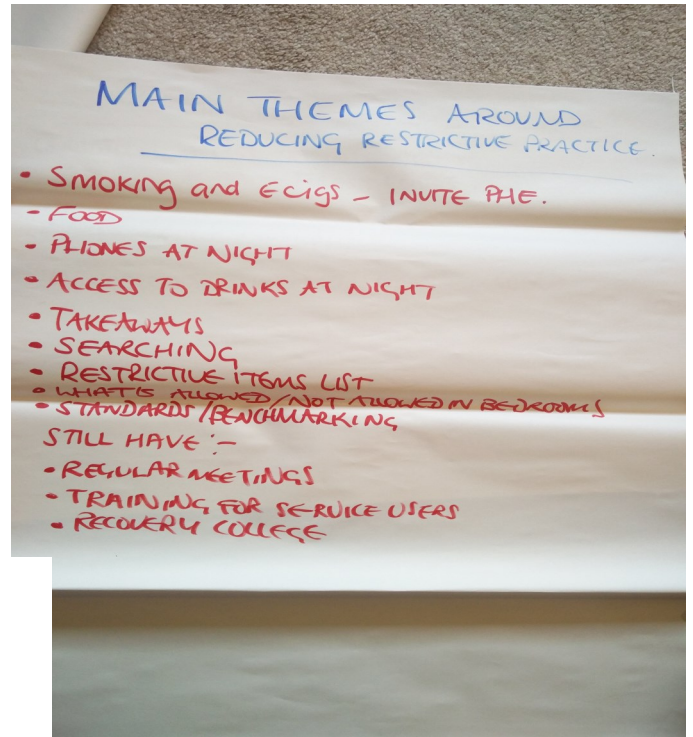 MAIN THEMES AROUND
REDUCING RESTRICTIVE PRACTICE.
• SMOKING and Ecigs - INVITE PHE.
- FOOD
- PHONES AT NIGHT
• ACCESS TO DRINKS AT NIGHT
• TAKEAWAYS
• SEARCHING
• RESTRICTIVE ITEMS LIST
• WHAT IS ALLOWED/NOT ALLOWED IN BEDROOMS
• STANDARDS/BENCHMARKING
STILL HAVE :-
• REGULAR MEETINGS
• TRAINING FOR SERVICE USERS
• RECOVERY COLLEGE